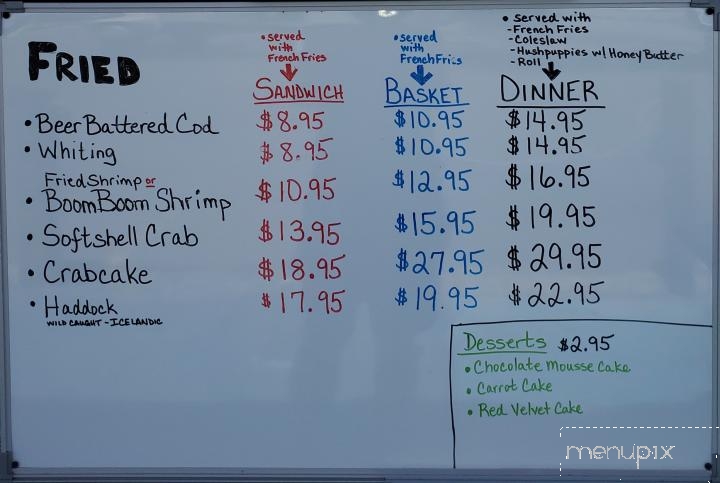 FRIED
• served
with
French Fries
SANDWICH
• served
with
French Fries
BASKET
• served with
-French Fries
-Coleslaw
-Hushpuppies w/ Honey Butter
-Roll
DINNER
• Beer Battered Cod $8.95 $10.95 $14.95
• Whiting $8.95 $10.95 $14.95
Fried Shrimp or
• BoomBoom Shrimp $10.95 $12.95 $16.95
• Softshell Crab $13.95 $15.95 $19.95
• Crabcake $18.95 $27.95 $29.95
• Haddock $17.95 $19.95 $22.95
WILD CAUGHT - ICELANDIC
Desserts $2.95
• Chocolate Mousse Cake
• Carrot Cake
• Red Velvet Cake
menupix